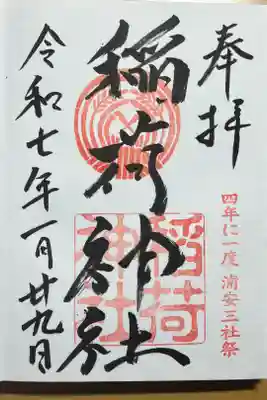 奉拝
四年に一度 浦安三社祭
稲荷神社
稲荷
神社
令和七年一月廿九日